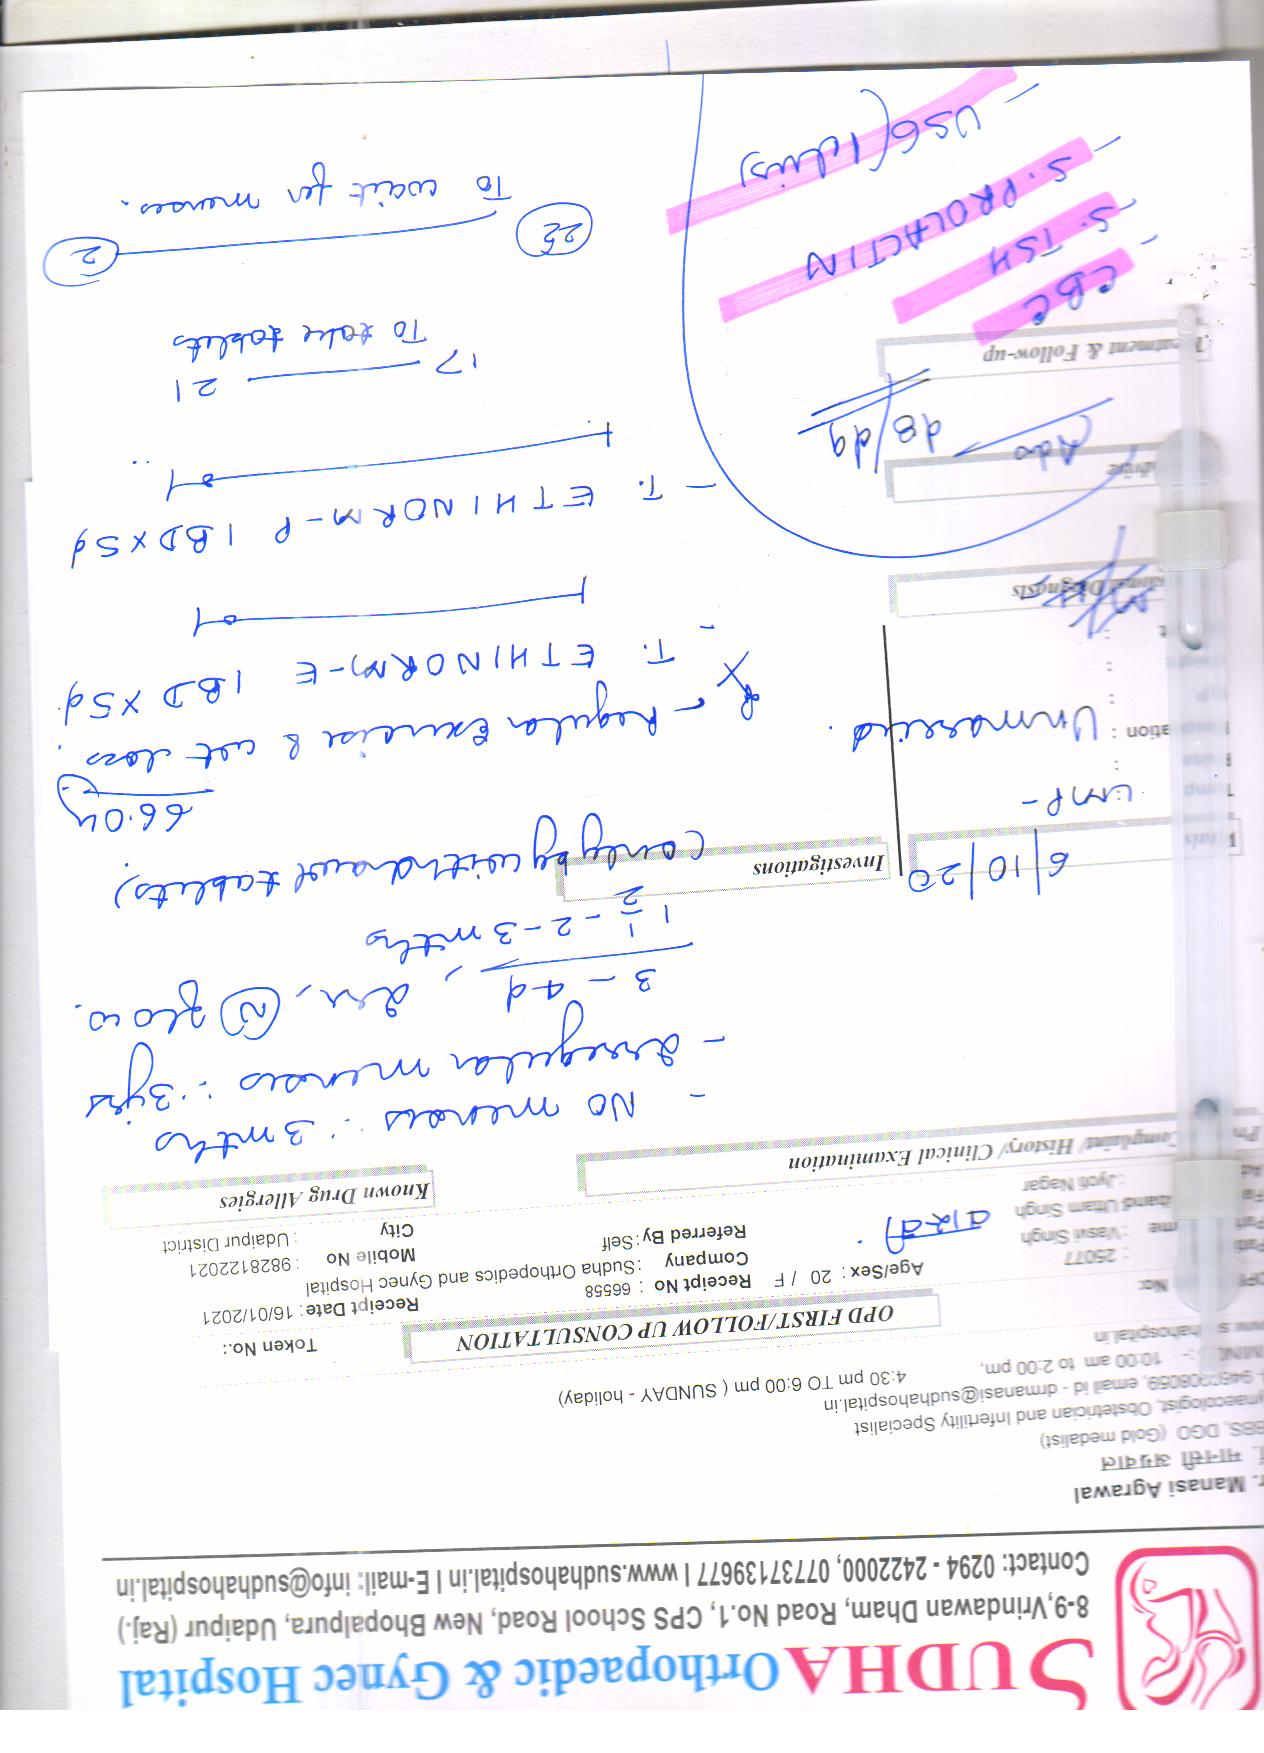 SUDHA Orthopaedic & Gynec Hospital
8-9,Vrindawan Dham, Road No.1, CPS School Road, New Bhopalpura, Udaipur (Raj.)
Contact: 0294 - 2422000, 07737139677 I www.sudhahospital.in I E-mail: info@sudhahospital.in
r. Manasi Agrawal
मानसी अग्रवाल
BBS, DGO (Gold medalist)
ynaecologist, Obstetrician and Infertility Specialist
email id - drmanasi@sudhahospital.in
10:00 am to 2:00 pm, 4:30 pm TO 6:00 pm ( SUNDAY - holiday)
ahospital.in
OPD FIRST/FOLLOW UP CONSULTATION
Token No.:
OPD No:
: 25077
Age/Sex : 20 / F
Receipt No : 66558
Receipt Date : 16/01/2021
me : Vasvi Singh
Company : Sudha Orthopedics and Gynec Hospital
Mobile No : 9828122021
Uttam Singh
Referred By : Self
City : Udaipur District
: Jyoti Nagar
Complaint/ History/ Clinical Examination
Known Drug Allergies
- No menses ∵ 3 mths
- Irregular menses ∵ 3yrs
3 - 4d
, N flow.
1 1/2 - 2 - 3 mths
(only by withdrawl tablets).
6/10/20
Investigations
LMP -
66.04
Unmarried.
- Regular Exercise & wt loss.
Rx
- T. ETHINORM-E 1 BD X 5d
- T. ETHINORM-P 1 BD X 5d
Diagnosis
Adv
d8/d9
17 — 21
To take tablets
Treatment & Follow-up
- CBC
- S. TSH
- S. PROLACTIN
- USG (Pelvis)
22 — 2
To wait for menses.